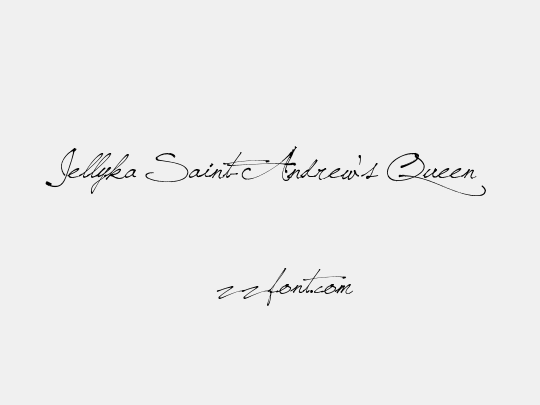 Jellyka Saint-Andrew's Queen
zzfont.com